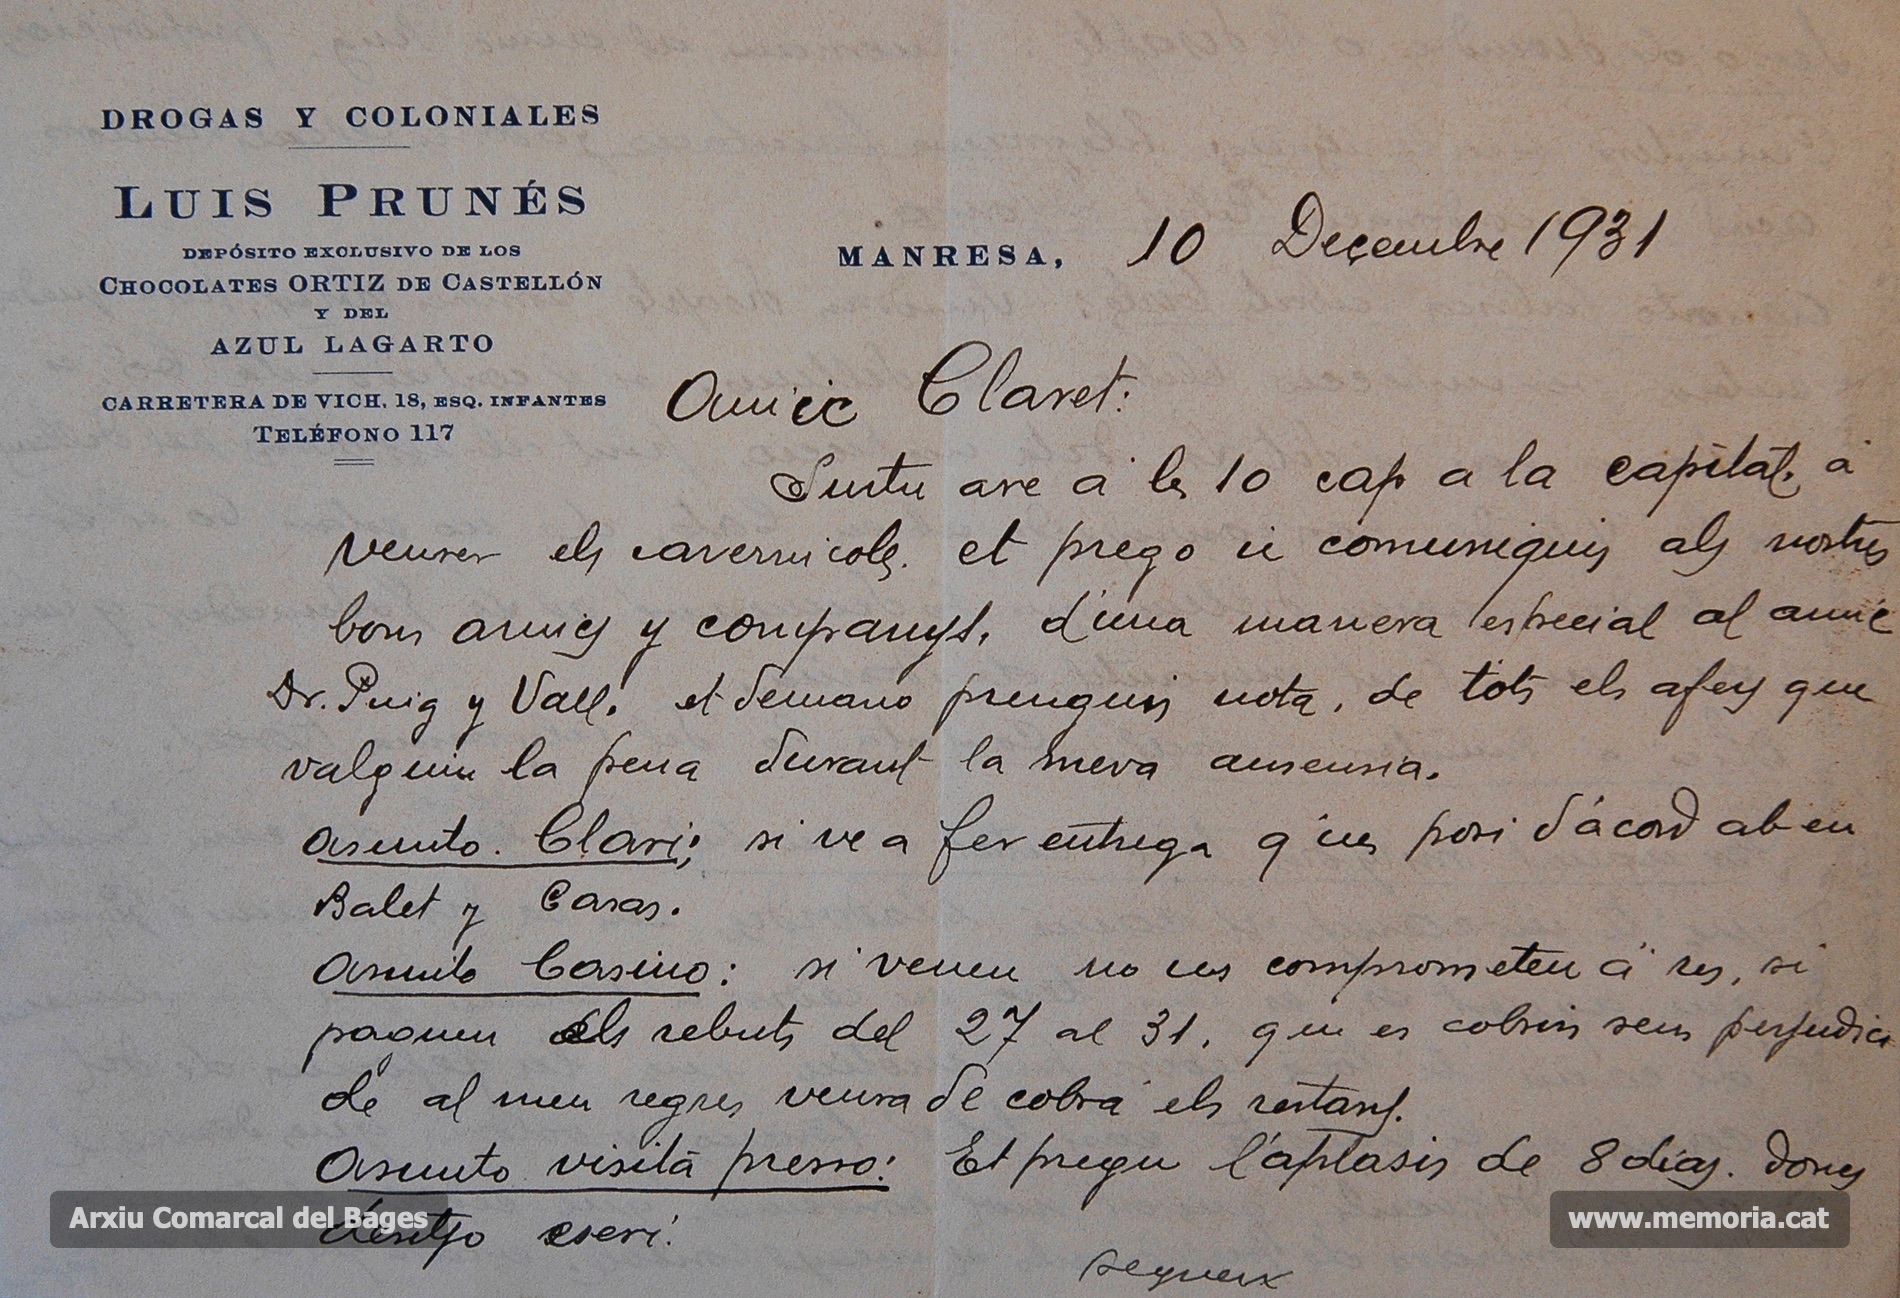 DROGAS Y COLONIALES
LUIS PRUNÉS
DEPÓSITO EXCLUSIVO DE LOS
CHOCOLATES ORTIZ DE CASTELLÓN
Y DEL
AZUL LAGARTO
CARRETERA DE VICH, 18, ESQ. INFANTES
TELÉFONO 117
MANRESA, 10 Deçembre 1931
Amic Claret:
Surtu are á les 10 cap a la capital, á
venser els cavernicols. et prego u comuniquis als nostres
bons amics y companys, d'una manera especial al amic
Dr. Puig y Vall. et demano prenguis nota, de tots els afers que
valguin la pena durant la meva ausensia.
Asunto Clari; si ve a fer entrega q'ues posi d'ácord ab en
Balet y Casas.
Asunto Casino: si venen no us comprometeu á res, si
paguen els rebuts del 27 al 31, que es cobrin sens perjudici
de al meu regres veura de cobrá els restants.
Asunto visitá presso: Et pregu l'aplasis de 8 dias. dones
desitjo eseri.
segueix
Arxiu Comarcal del Bages
www.memoria.cat